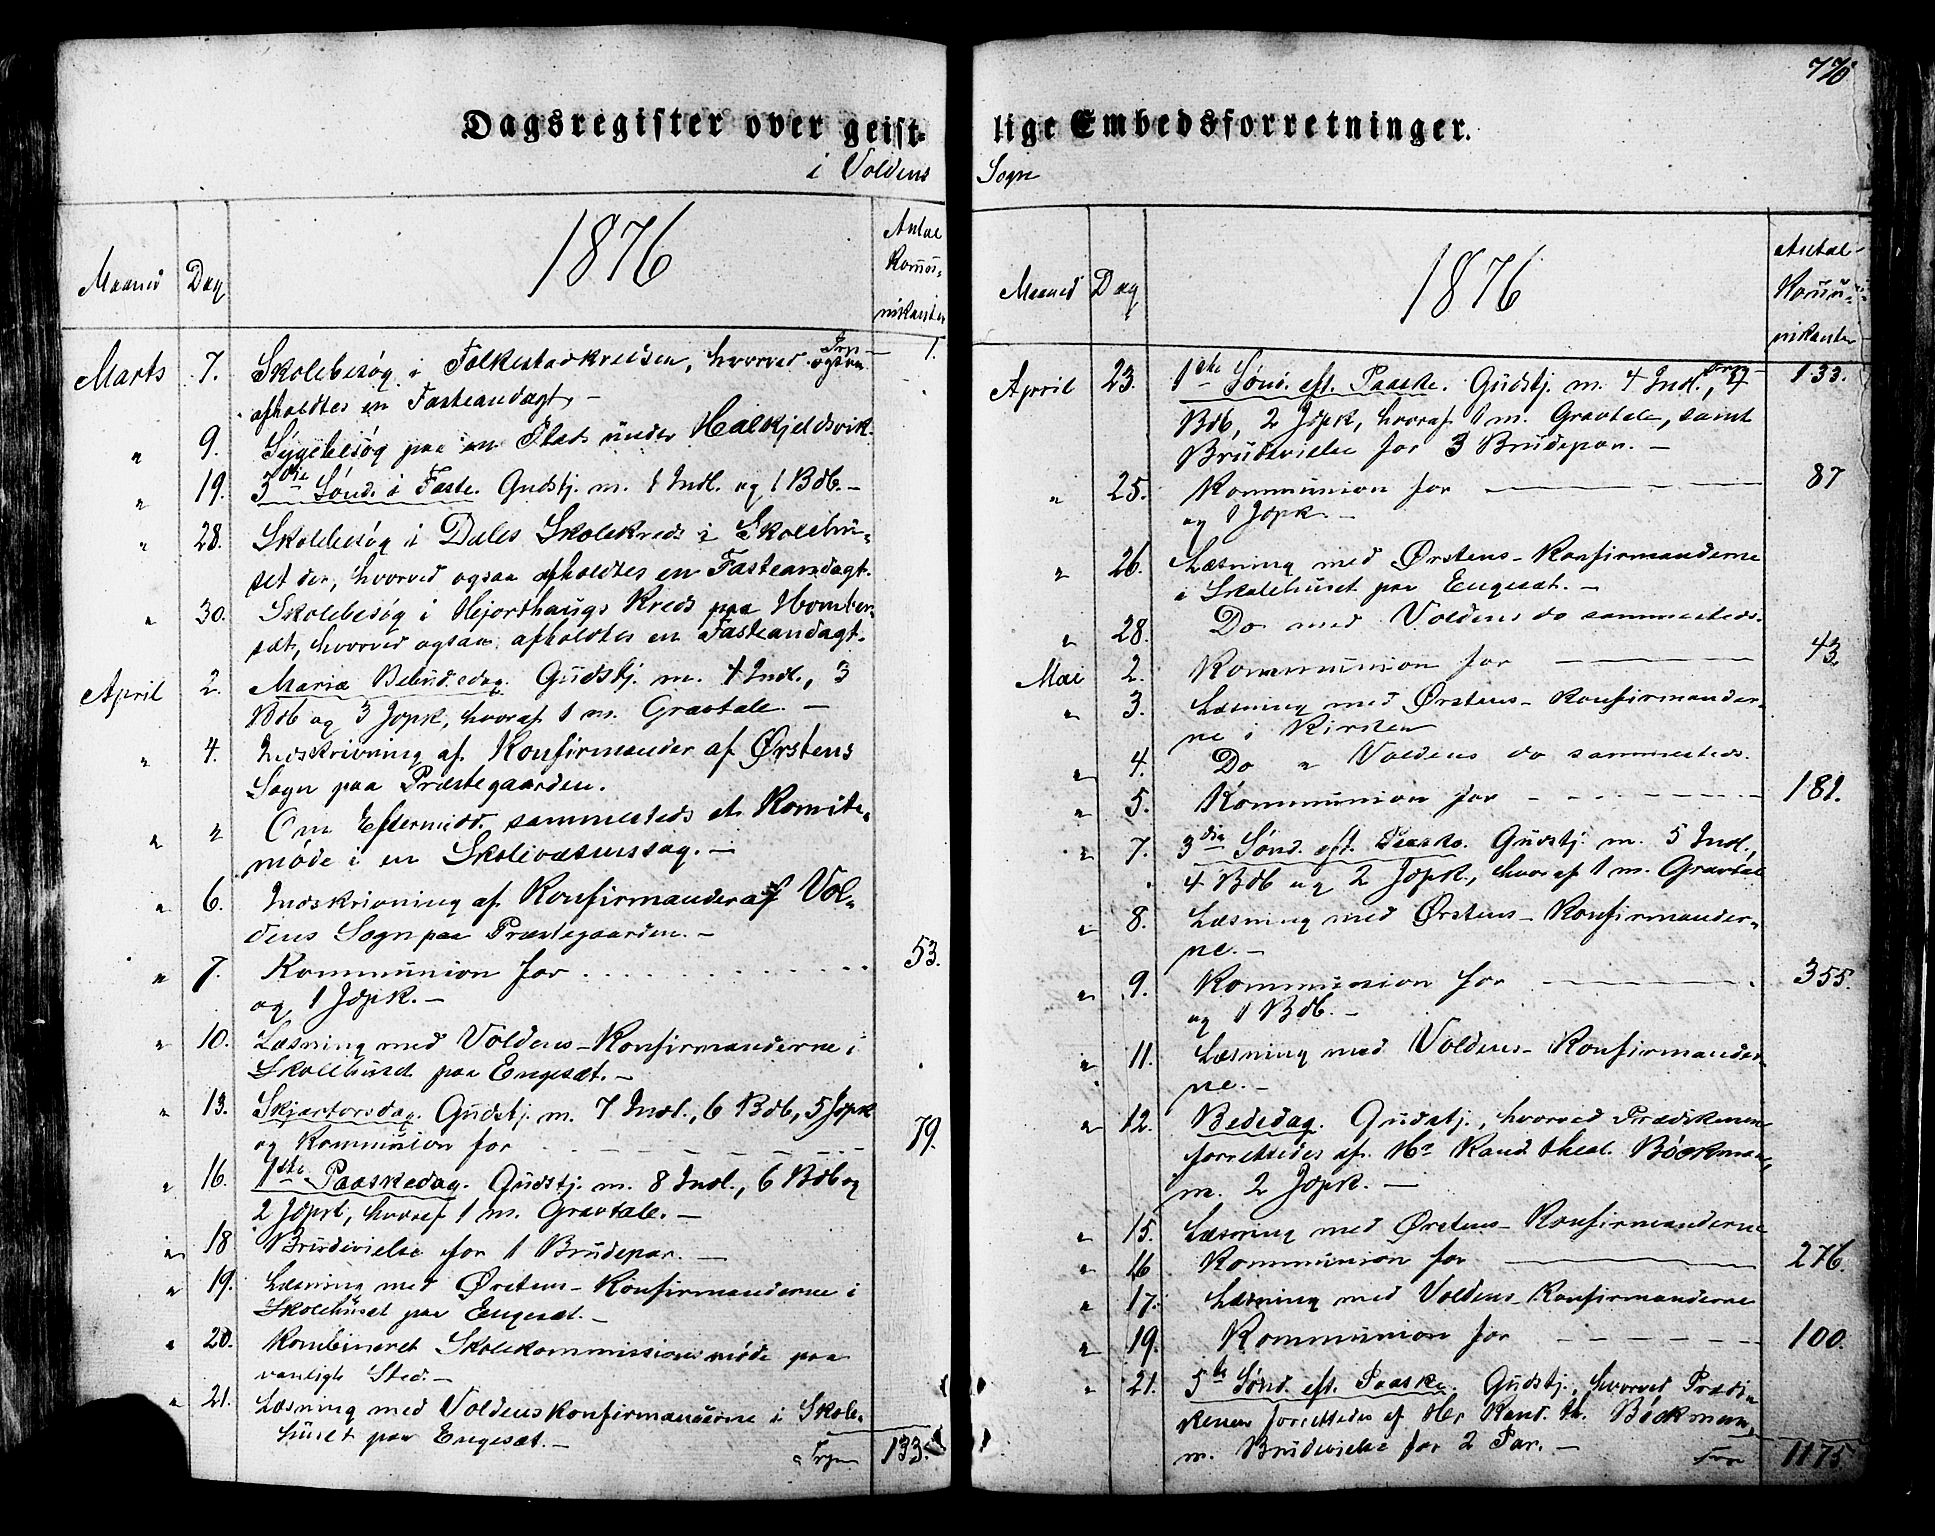 776
Dagsregister over geist-
i Voldens
1876
Maaned Dag
Antal
Kommu-
nikanter
Marts 7. Skolebesøg i Folkestadkredsen, hvorved ogsaa 1.
afholdtes en Fasteandagt. –
" 9. Sygebesøg paa en Plads under Halkjeldsvik.
" 19. 3die Sønd. i Faste. Gudstj. m. 1 Indl. og 1 Bdb. –
" 28. Skolebesøg i Dales Skolekreds i Skolehu-
set der, hvorved ogsaa afholdtes en Fasteandagt.
" 30. Skolebesøg i Hjorthaugs Kreds paa Homber-
sæt, hvorved ogsaa afholdtes en Fasteandagt.
April 2. Maria Bebud.edag. Gudstj. m. 4 Indl., 3
Bdb og 3 Jdpk, hvoraf 1 m. Gravtale. –
" 4. Indskrivning af Konfirmander af Ørstens
Sogn paa Præstegaarden.
" " Om Eftermidd. sammesteds et Komite-
møde i en Skolevæsenssag. –
" 6. Indskrivning af Konfirmander af Vol-
dens Sogn paa Præstegaarden. –
" 7. Kommunion for . . . . . . . . . . . 53.
og 1 Jdpk. –
" 10. Læsning med Voldens-Konfirmanderne i
Skolehuset paa Engesæt. –
" 13. Skjærtorsdag. Gudstj. m. 7 Indl., 6 Bdb, 5 Jdpk
og Kommunion for – – – – – – – – 79.
" 16. 1ste Paaskedag. Gudstj. m. 8 Indl., 6 Bdb og
2 Jdpk, hvoraf 1 m. Gravtale. –
" 18 Brudevielse for 1 Brudepar. –
" 19. Læsning med Ørstens-Konfirmanderne i
Skolehuset paa Engesæt. –
" 20. Kombineret Skolekommissionsmøde paa
vanligt Sted –
" 21. Læsning med Voldens konfirmanderne i Skole-
huset paa Engesæt. –
133.
lige Embedsforretninger.
Sogn
1876
Maaned Dag
Antal
Kommu-
nikanter
April 23. 1ste Sønd. eft. Paaske. Gudstj. m. 4 Indl., 4 133.
Bdb, 2 Jdpk, hvoraf 1 m. Gravtale, samt
Brudevielse for 3 Brudepar. –
" 25. Kommunion for – – – – 87
og 1 Jdpk. –
" 26. Læsning med Ørstens-Konfirmanderne
i Skolehuset paa Engesæt. –
" 28. Do med Voldens do sammesteds.
Mai 2. Kommunion for – – – – 43.
" 3. Læsning med Ørstens-Konfirmander-
ne i Kirken
" 4. Do " Voldens do sammesteds.
" 5. Kommunion for – – – – – 181.
" 7. 3die Sønd. eft. Paaske. Gudstj. m. 5 Indl.,
4 Bdb og 2 Jdpk, hvoraf 1 m. Gravtale
" 8. Læsning med Ørstens-Konfirmander-
ne. –
" 9. Kommunion for – – – – 355.
og 1 Bdb. –
" 11. Læsning med Voldens-Konfirmander-
ne. –
" 12. Bededag. Gudstj., hvorved Prædikenen
forrettedes af Hr Kand. theol. Böckman,
m. 2 Jdpk. –
" 15. Læsning med Ørstens-Konfirmanderne
" 16 Kommunion for – – – – 276.
" 17. Læsning med Voldens-Konfirmanderne
" 19. Kommunion for – – – – – 100.
" 21. 5te Sønd. eft. Paaske. Gudstj., hvorved Prædi-
kenen forrettedes af Hr Kand. th. Böckman,
m. Brudevielse for 2 Par. –
1175